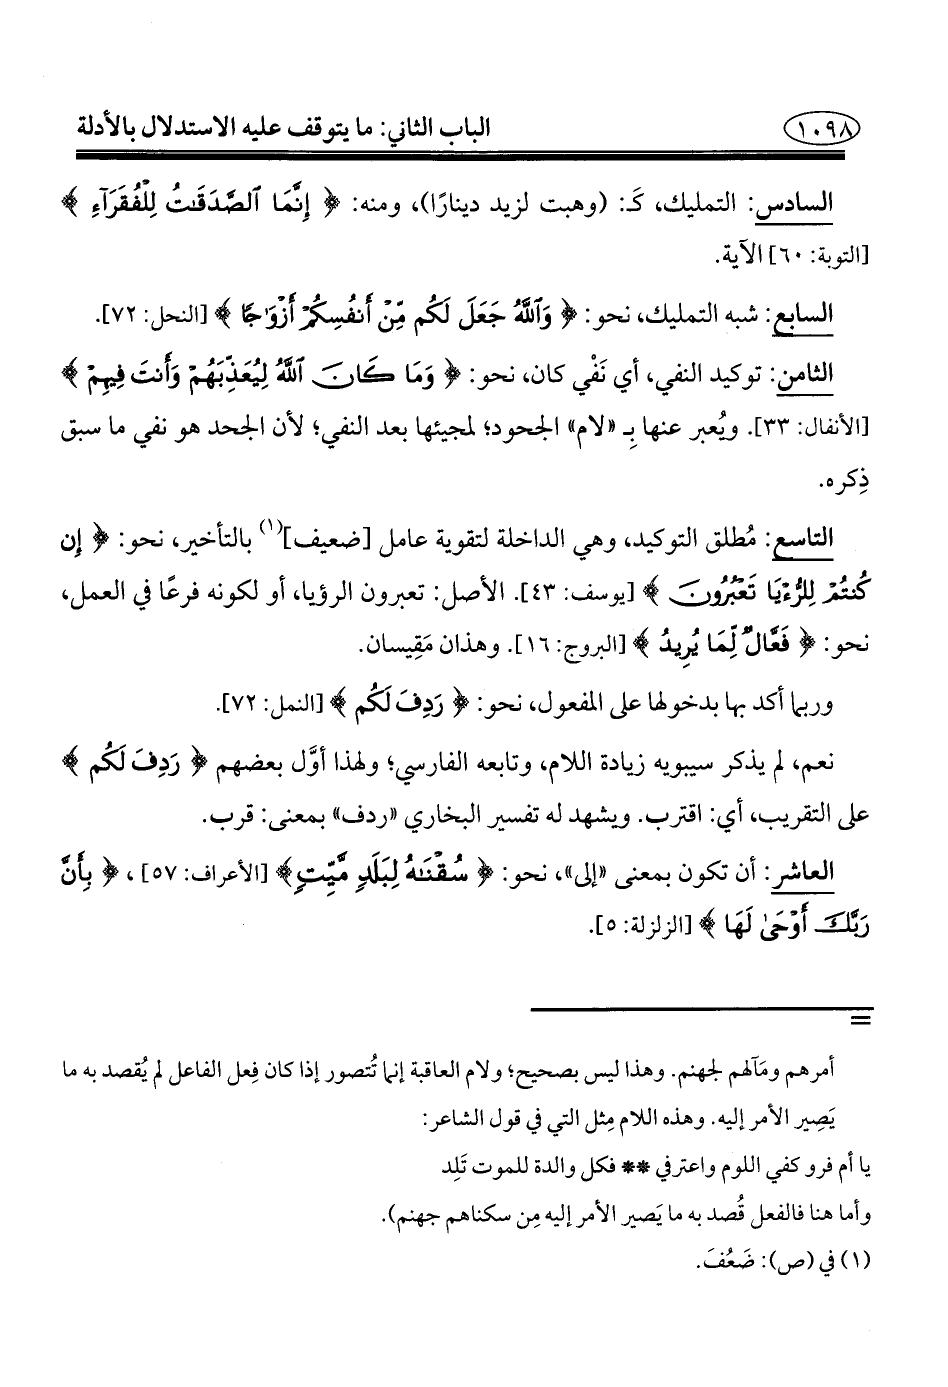 ١٠٩٨ الباب الثاني: ما يتوقف عليه الاستدلال بالأدلة
السادس: التمليك، كَـ: (وهبت لزيد دينارًا)، ومنه: ﴿ إِنَّمَا ٱلصَّدَقَـٰتُ لِلْفُقَرَآءِ ﴾
[التوبة: ٦٠] الآية.
السابع: شبه التمليك، نحو: ﴿ وَٱللَّهُ جَعَلَ لَكُم مِّنْ أَنفُسِكُمْ أَزْوَٰجًا ﴾ [النحل: ٧٢].
الثامن: توكيد النفي، أي نَفْي كان، نحو: ﴿ وَمَا كَانَ ٱللَّهُ لِيُعَذِّبَهُمْ وَأَنتَ فِيهِمْ ﴾
[الأنفال: ٣٣]. ويُعبر عنها بِـ «لام» الجحود؛ لمجيئها بعد النفي؛ لأن الجحد هو نفي ما سبق
ذِكره.
التاسع: مُطلق التوكيد، وهي الداخلة لتقوية عامل [ضعيف](١) بالتأخير، نحو: ﴿ إِن
كُنتُمْ لِلرُّءْيَا تَعْبُرُونَ ﴾ [يوسف: ٤٣]. الأصل: تعبرون الرؤيا، أو لكونه فرعًا في العمل،
نحو: ﴿ فَعَّالٌ لِّمَا يُرِيدُ ﴾ [البروج: ١٦]. وهذان مَقِيسان.
وربما أكد بها بدخولها على المفعول، نحو: ﴿ رَدِفَ لَكُم ﴾ [النمل: ٧٢].
نعم، لم يذكر سيبويه زيادة اللام، وتابعه الفارسي؛ ولهذا أوَّل بعضهم ﴿ رَدِفَ لَكُم ﴾
على التقريب، أي: اقترب. ويشهد له تفسير البخاري «ردف» بمعنى: قرب.
العاشر: أن تكون بمعنى «إلى»، نحو: ﴿ سُقْنَـٰهُ لِبَلَدٍ مَّيِّتٍ﴾ [الأعراف: ٥٧] ، ﴿ بِأَنَّ
رَبَّكَ أَوْحَىٰ لَهَا ﴾ [الزلزلة: ٥].
=
أمرهم ومَآلهم لجهنم. وهذا ليس بصحيح؛ ولام العاقبة إنما تُتصور إذا كان فِعل الفاعل لم يُقصد به ما
يَصِير الأمر إليه. وهذه اللام مِثل التي في قول الشاعر:
يا أم فرو كفي اللوم واعترفي ** فكل والدة للموت تَلِد
وأما هنا فالفعل قُصد به ما يَصير الأمر إليه مِن سكناهم جهنم).
(١) في (ص): ضَعُفَ.